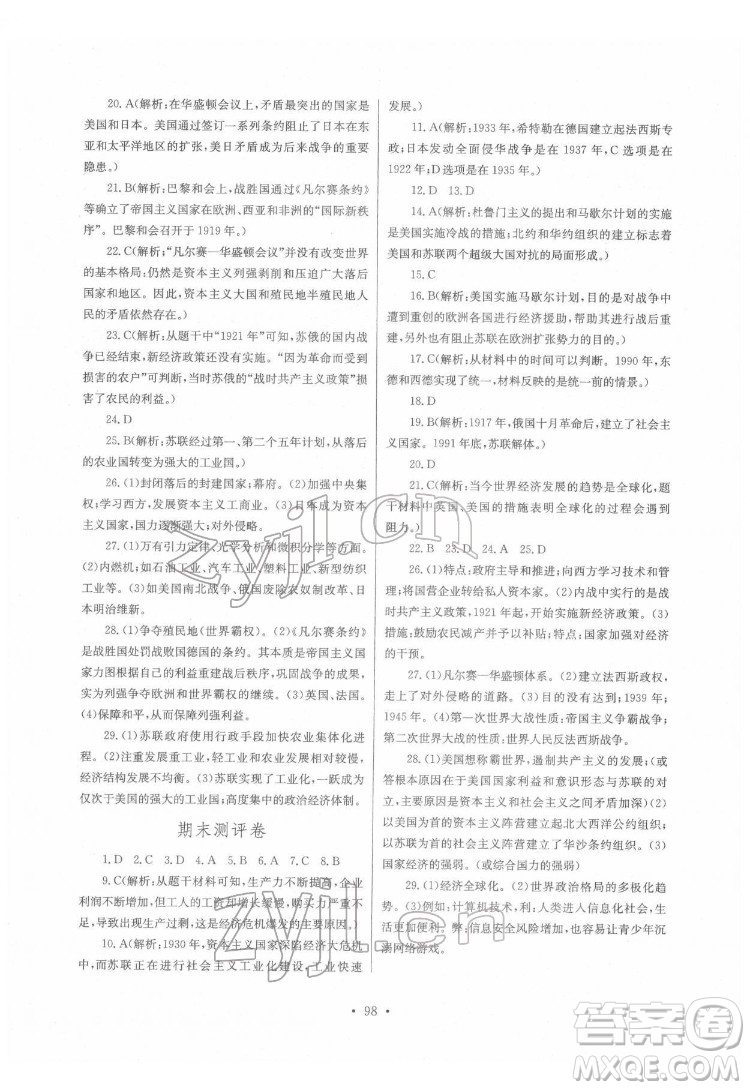 20. A(解析:在华盛顿会议上,矛盾最突出的国家是
美国和日本。美国通过签订一系列条约阻止了日本在东
亚和太平洋地区的扩张,美日矛盾成为后来战争的重要
隐患。)
21. B(解析:巴黎和会上,战胜国通过《凡尔赛条约》
等确立了帝国主义国家在欧洲、西亚和非洲的“国际新秩
序”。巴黎和会召开于1919年。)
22. C(解析:“凡尔赛—华盛顿会议”并没有改变世界
的基本格局;仍然是资本主义列强剥削和压迫广大落后
国家和地区。因此,资本主义大国和殖民地半殖民地人
民的矛盾依然存在。)
23. C(解析:从题干中“1921年”可知,苏俄的国内战
争已经结束,新经济政策还没有实施。“因为革命而受到
损害的农户”可判断,当时苏俄的“战时共产主义政策”损
害了农民的利益。)
24. D
25. B(解析:苏联经过第一、第二个五年计划,从落后
的农业国转变为强大的工业国。)
26. (1)封闭落后的封建国家;幕府。(2)加强中央集
权;学习西方,发展资本主义工商业。(3)日本成为资本
主义国家,国力逐渐强大;对外侵略。
27. (1)万有引力定律、光学分析和微积分学等方面。
(2)内燃机;如石油工业、汽车工业、塑料工业、新型化学
工业等。(3)如美国南北战争、俄国废除农奴制改革、日
本明治维新。
28. (1)争夺殖民地(世界霸权)。(2)《凡尔赛条约》
是战胜国处罚战败国德国的条约。是帝国主义国
家力图根据自己的利益重建战后秩序、争夺的成果,
实为列强争夺欧洲和世界霸权的继续。(3)英国、法国。
(4)保障和平,只为强国利益。
29. (1)苏联政府使用行政手段加快农业集体化进
程。(2)注重发展重工业,轻工业和农业发展相对较慢,
经济结构发展不均衡。(3)苏联实现了工业化,一跃成为
仅次于美国的强大的工业国;高度集中的政治经济体制。
期末测评卷
1. D 2. C 3. D 4. A 5. D 6. B 7. C 8. B
9. C(解析:从题干材料可知,生产力不断提高,企业
利润不断增加,但农民和工人的工资却增长缓慢,购买力不
足,导致出现生产过剩,这是经济危机爆发的主要原因。)
10. A(解析:1930年,资本主义国家深陷经济大危机
中,而苏联正在进行社会主义工业化建设,工业快速
发展。)
11. A(解析:1933年,希特勒在德国建立起法西斯专
政;日本发动全面侵华战争是在1937年,C选项是在
1922年;D选项是在1935年。)
12. D 13. D
14. A(解析:杜鲁门主义的提出和马歇尔计划的实施
是美国实施冷战的措施;北约和华约组织的建立标志着
美国和苏联两个超级大国对抗的局面形成。)
15. C
16. B(解析:美国实施马歇尔计划,目的是对战争中
遭到重创的欧洲各国进行经济援助,帮助其进行战后重
建,另外也有阻止苏联在欧洲扩张势力的目的。)
17. C(解析:从材料中的时间可以判断。1990年,东
德和西德实现了统一,材料反映的是统一前的情景。)
18. D
19. B(解析:1917年,俄国十月革命后,建立了社会主
义国家。1991年,苏联解体。)
20. D
21. A(解析:当今世界经济发展的趋势是全球化,题
干材料中英国、美国的措施表明全球化的过程会遇到
阻力。)
22. B 23. D 24. A 25. D
26. (1)特点:政府主导和推进;向西方学习技术和管
理;将国营企业转给私人资本家。(2)内战以来,实行战
时共产主义政策,1921年起,开始实施新经济政策。(3)
措施:鼓励农民减产并予以补贴;特点:加强国家对经济
的干预。
27. (1)凡尔赛—华盛顿体系。(2)建立法西斯政权,
走上了对外侵略的道路。(3)目的没有达到;1939年;
1945年。(4)第一次世界大战性质:帝国主义争霸战争;
第二次世界大战性质:世界人民反法西斯战争。
28. (1)美国想称霸世界,遏制共产主义的发展;(或
答根本原因是美国国家利益和意识形态与苏联对立)(2)
以美国为首的资本主义阵营建立北大西洋公约组织;以
苏联为首的社会主义阵营建立了华沙条约组织。(3)
国家经济的强弱。(或综合国力的强弱)
29. (1)经济全球化。(2)世界政治格局的多极化趋
势。(3)例如:计算机技术,利:人类进入信息化社会,生活
更加便利。弊:信息安全风险增加,也容易让青少年沉
湎网络游戏。
• 98 •
zyjl.cn
zyjl.cn
答案卷
MXQE.COM